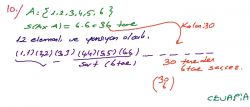 10./ A = {1,2,3,4,5,6}
s(AxA) = 6.6 = 36 tane Kalan: 30
12 elemanlı ve yansıyan olacak.
(1,1) (2,2) (3,3) (4,4) (5,5) (6,6) 30 tane den
Sabit (6 tane) 6 tane seçeriz.
(30 6)
CEVAP: A